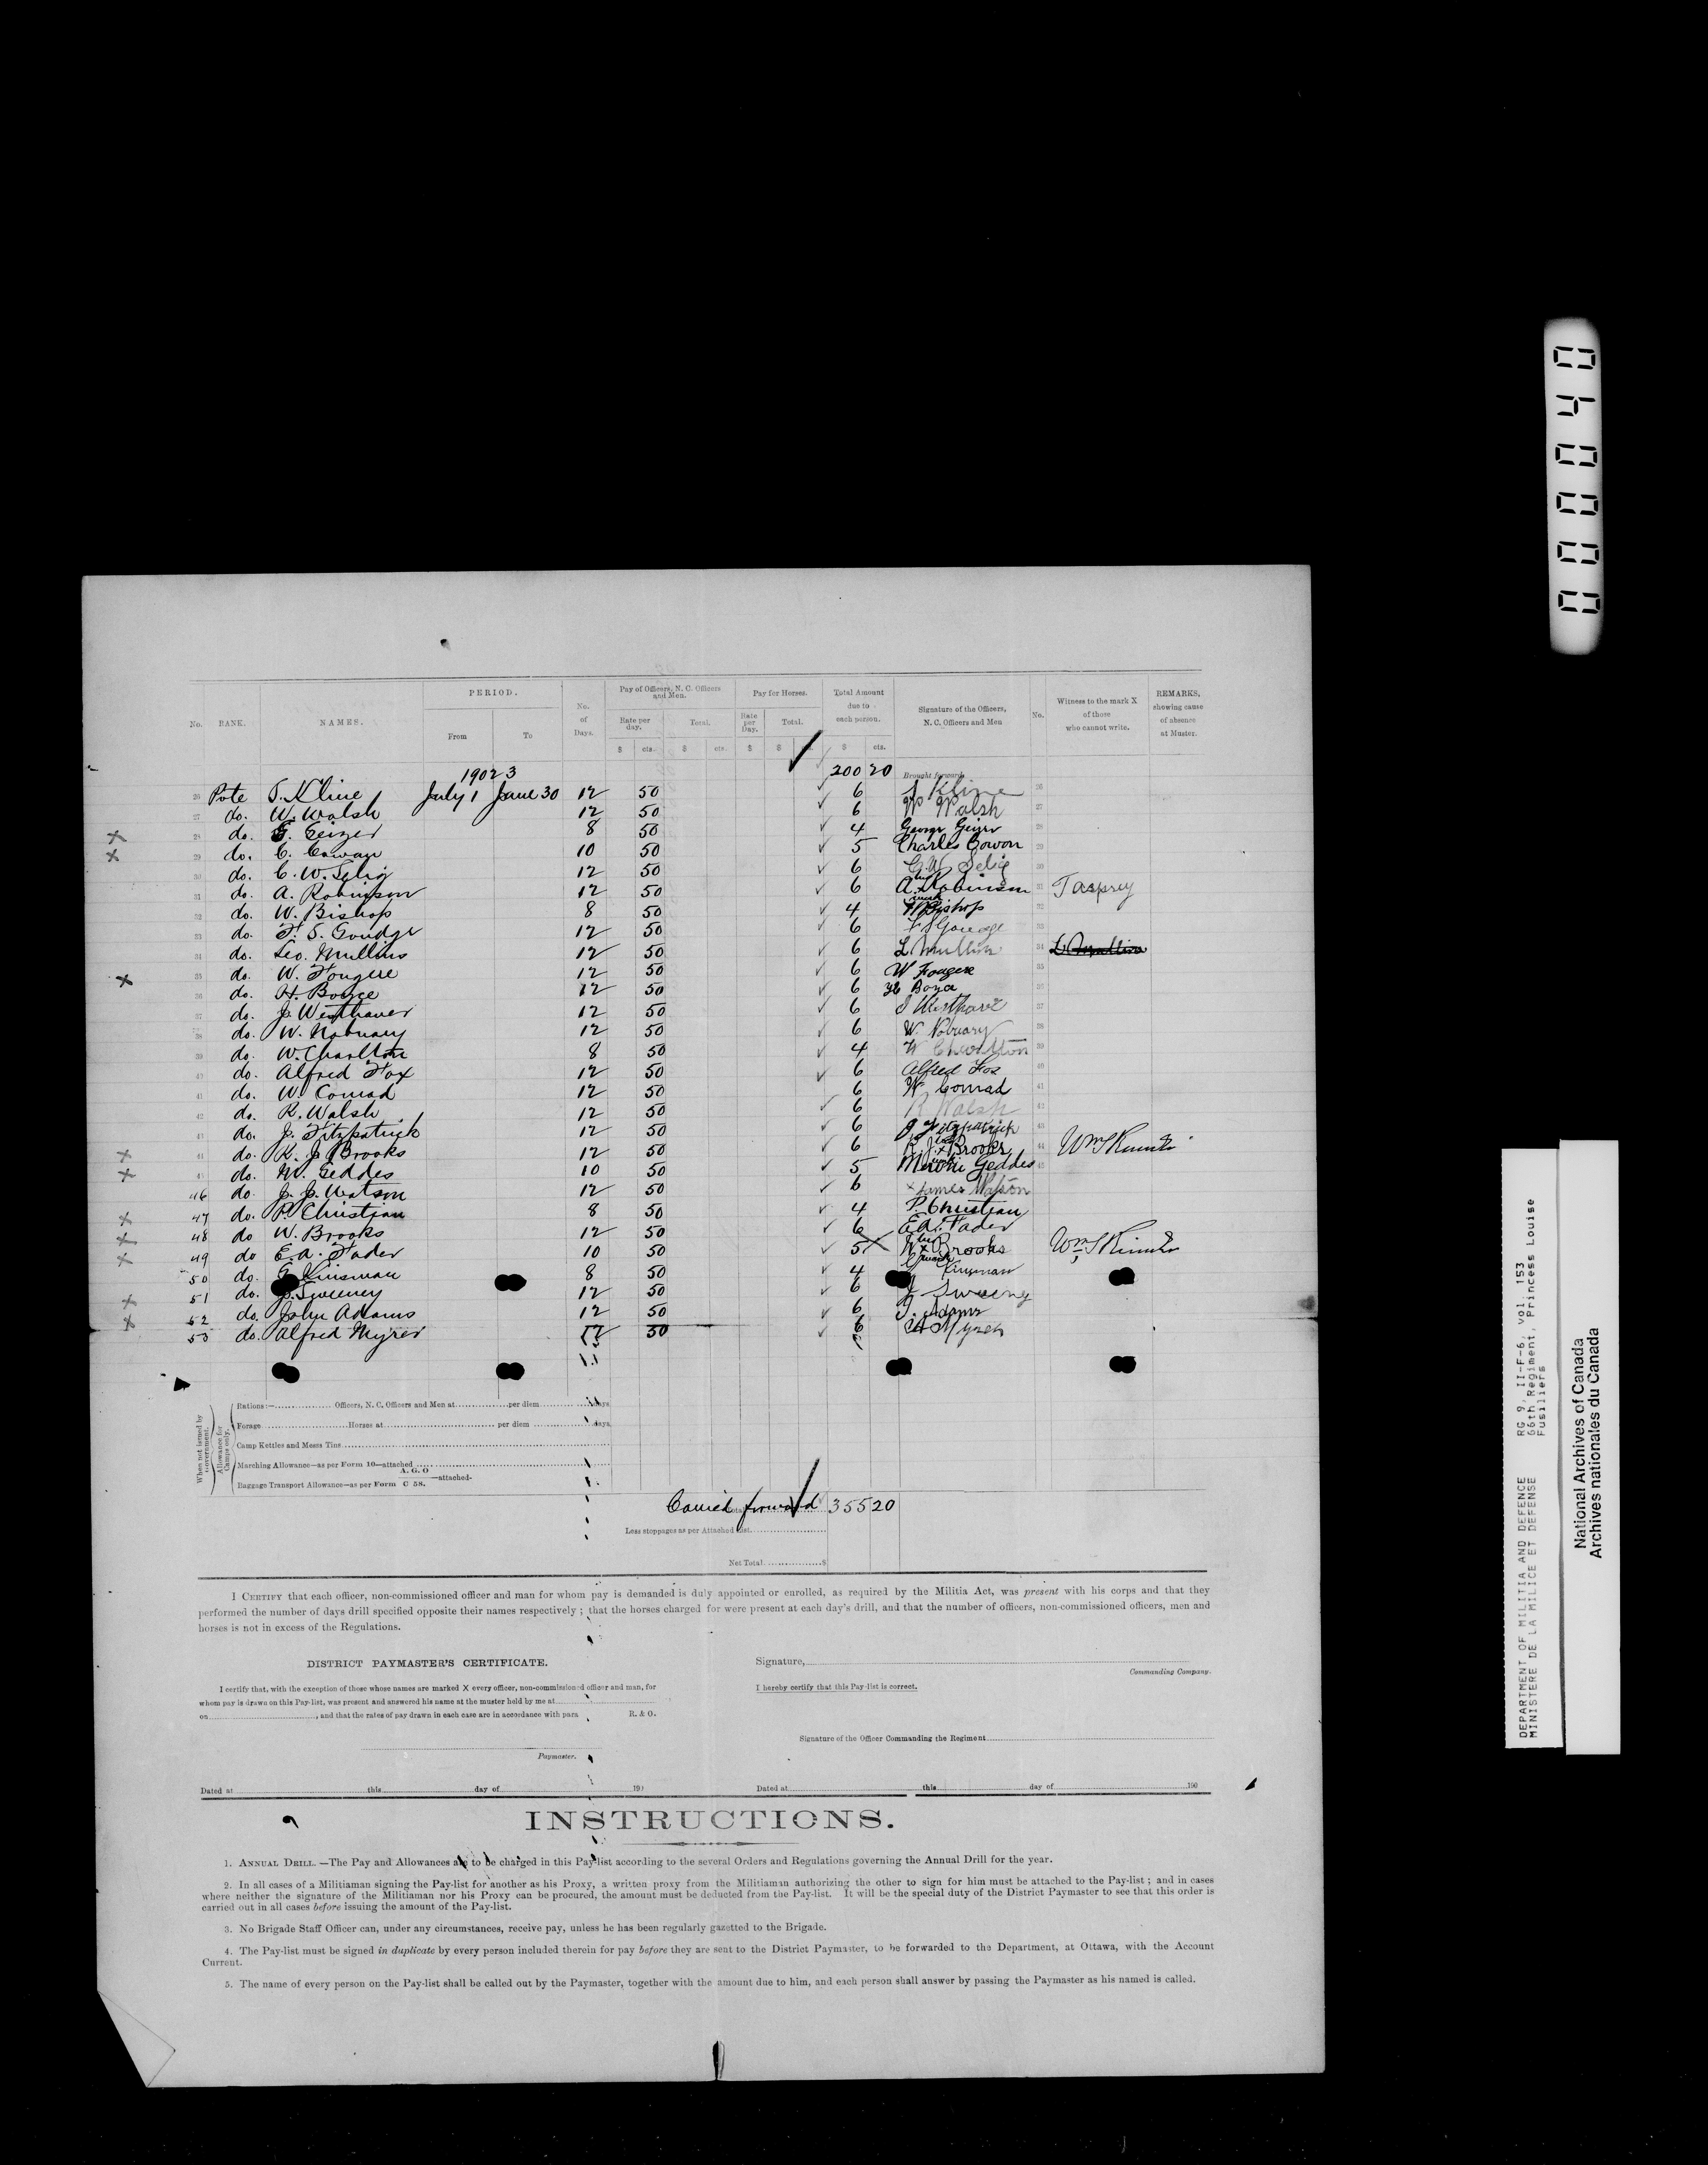 PERIOD.
Pay of Officers, N. C. Officers and Men.
Pay for Horses.
Total Amount due to each person.
No. RANK. NAMES. From To No. of Days. Rate per day. Total. Rate per Day. Total. Signature of the Officers, N. C. Officers and Men No. Witness to the mark X of those who cannot write. REMARKS, showing cause of absence at Muster.
$ cts. $ cts. $ $ cts. $ cts.
1902 3 200 20 Brought forward
26 Pote S. Kline July 1 June 30 12 50 6 S Kline 26
27 do. W. Walsh 12 50 6 W Walsh 27
x 28 do. G. Geizer 8 50 4 George Geizer 28
x 29 do. C. Cowan 10 50 5 Charles Cowon 29
30 do. C. W. Selig 12 50 6 C. W. Selig 30
31 do. A. Robinson 12 50 6 A. Robinson 31 T Asprey
32 do. W. Bishop 8 50 4 W Bishop 32
33 do. F. S. Goudge 12 50 6 F S Goudge 33
34 do. Leo. Mullins 12 50 6 L Mullin 34
x 35 do. W. Fougere 12 50 6 W Fougere 35
36 do. H. Boyce 12 50 6 H Boyce
37 do. J. Westhaver 12 50 6 J Westhaver 37
38 do. W. Nobuary 12 50 6 W. Nobuary 38
39 do. W. Charlton 8 50 4 W Charlton 39
40 do. Alfred Fox 12 50 6 Alfred Fox 40
41 do. W. Conrad 12 50 6 W. Conrad 41
42 do. R. Walsh 12 50 6 R Walsh 42
43 do. J. Fitzpatrick 12 50 6 J Fitzpatrick 43
x 44 do. R. J. Brooks 12 50 6 R. J. x Brooks 44
x 45 do. M. Geddes 10 50 5 Geddes 45
46 do. J. J. Watson 12 50 6 x James Watson
x 47 do. P. Christian 8 50 4 P. Christian
x 48 do W. Brooks 12 50 6 E.A. Fader
x 49 do E. A. Fader 10 50 5 W x Brooks
50 do. Kinsman 8 50 4 Kinsman
x 51 do. J. Sweeney 12 50 6 J Sweeny
x 52 do. John Adams 12 50 6 J. Adams
53 do. Alfred Myrer 12 50 6
When not issued by Government.
Allowance for Camps only.
Rations:— Officers, N. C. Officers and Men at per diem days
Forage Horses at per diem days
Camp Kettles and Messs Tins
Marching Allowance—as per Form 10—attached
Baggage Transport Allowance—as per Form A. G. O C 58. —attached-
Carried forward Total 355 20
Less stoppages as per Attached list
Net Total $
I CERTIFY that each officer, non-commissioned officer and man for whom pay is demanded is duly appointed or enrolled, as required by the Militia Act, was present with his corps and that they
performed the number of days drill specified opposite their names respectively ; that the horses charged for were present at each day's drill, and that the number of officers, non-commissioned officers, men and
horses is not in excess of the Regulations.
DISTRICT PAYMASTER'S CERTIFICATE.
Signature,
Commanding Company.
I certify that, with the exception of those whose names are marked X every officer, non-commissioned officer and man, for
whom pay is drawn on this Pay-list, was present and answered his name at the muster held by me at
on , and that the rates of pay drawn in each case are in accordance with para R. & O.
I hereby certify that this Pay-list is correct.
Signature of the Officer Commanding the Regiment
Paymaster.
Dated at this day of 190
Dated at this day of 190
INSTRUCTIONS.
1. ANNUAL DRILL. —The Pay and Allowances are to be charged in this Pay-list according to the several Orders and Regulations governing the Annual Drill for the year.
2. In all cases of a Militiaman signing the Pay-list for another as his Proxy, a written proxy from the Militiaman authorizing the other to sign for him must be attached to the Pay-list ; and in cases
where neither the signature of the Militiaman nor his Proxy can be procured, the amount must be deducted from the Pay-list. It will be the special duty of the District Paymaster to see that this order is
carried out in all cases before issuing the amount of the Pay-list.
3. No Brigade Staff Officer can, under any circumstances, receive pay, unless he has been regularly gazetted to the Brigade.
4. The Pay-list must be signed in duplicate by every person included therein for pay before they are sent to the District Paymaster, to be forwarded to the Department, at Ottawa, with the Account
Current.
5. The name of every person on the Pay-list shall be called out by the Paymaster, together with the amount due to him, and each person shall answer by passing the Paymaster as his named is called.
DEPARTMENT OF MILITIA AND DEFENCE RG 9, II-F-6, vol. 153
MINISTERE DE LA MILICE ET DEFENSE 66th Regiment, Princess Louise
Fusiliers
National Archives of Canada
Archives nationales du Canada